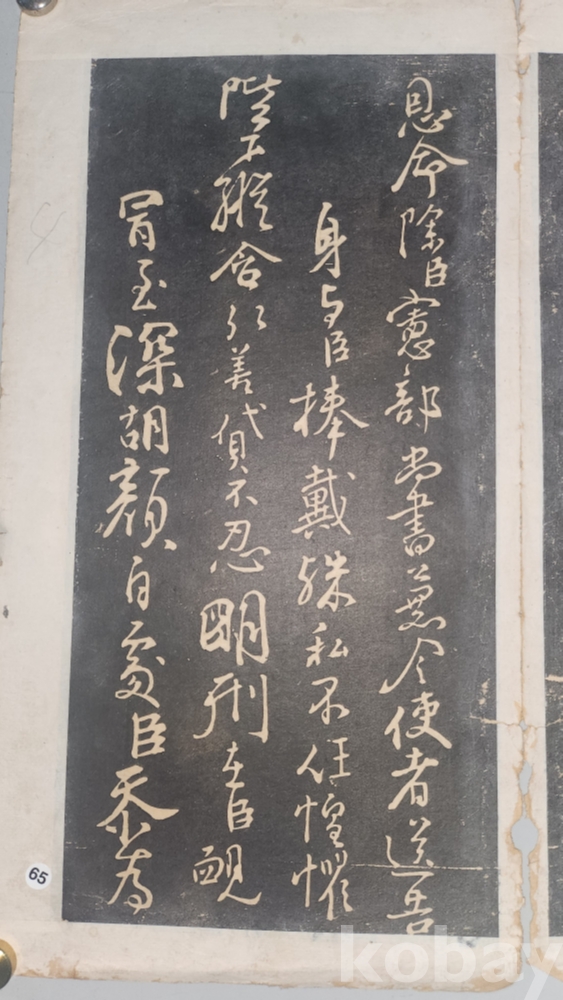 恩命除臣憲部尚書兼令使者送告
身与臣捧戴殊私不任惶懼
陛下縱含弘善貸不忍明刑在臣覥
冐至深胡顏自處臣忝為
65
kobay